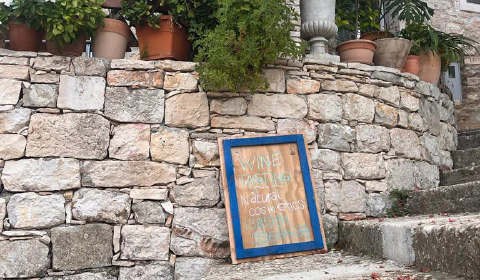 WINE
TASTING
Natural
cosmetics